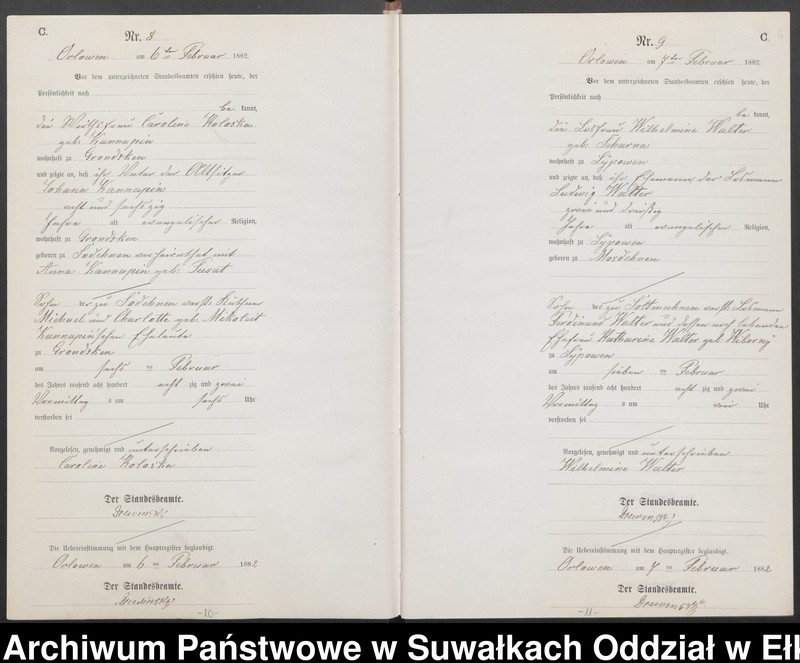 C.
Nr. 8
Orlowen am 6ten Februar 1882.
Vor dem unterzeichneten Standesbeamten erschien heute, der
Persönlichkeit nach
be kannt,
die Wirthsfrau Caroline Koloska
geb. Kannapin
wohnhaft zu Grondsken
und zeigte an, daß ihr Vater der Altsitzer
Johann Kannapin
acht und sechszig
Jahre alt evangelischer Religion,
wohnhaft zu Grondsken
geboren zu Sodehnen verheirathet mit
Anna Kannapin geb.
Sohn der zu Sodehnen verst.
Michael und Charlotte geb. Mikoleit
Kannapinschen Eheleute
zu Grondsken
am sechs ten Februar
des Jahrs tausend acht hundert acht zig und zwei
Vormittag s um sechs Uhr
verstorben sei
Vorgelesen, genehmigt und unterschrieben
Caroline Koloska
Der Standesbeamte.
Die Uebereinstimmung mit dem Hauptregister beglaubigt.
Orlowen am 6 ten Februar 1882
Der Standesbeamte.
-10-
C.
Nr. 9
Orlowen am 7ten Februar 1882.
Vor dem unterzeichneten Standesbeamten erschien heute, der
Persönlichkeit nach
be kannt,
die Losfrau Wilhelmine Walter
geb.
wohnhaft zu Lypowen
und zeigte an, daß ihr Ehemann, der Losmann
Ludwig Walter
zwei und dreißig
Jahre alt evangelischer Religion,
wohnhaft zu Lypowen
geboren zu Mosdehnen
Sohn des zu Soltmahnen verst. Losmann
Ferdinand Walter und dessen noch lebenden
Ehefrau Katharine Walter geb.
zu Lypowen
am sieben ten Februar
des Jahrs tausend acht hundert acht zig und zwei
Vormittag s um vier Uhr
verstorben sei
Vorgelesen, genehmigt und unterschrieben
Wilhelmine Walter
Der Standesbeamte.
Die Uebereinstimmung mit dem Hauptregister beglaubigt.
Orlowen am 7 ten Februar 1882
Der Standesbeamte.
-11-
Archiwum Państwowe w Suwałkach Oddział w Eł